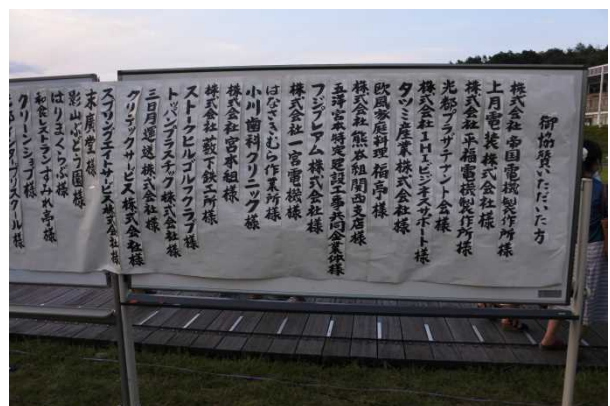 御協賛いただいた方
株式会社 帝国電機製作所様
上月電装株式会社様
株式会社 平福電機製作所様
光都プラザテナント会様
株式会社IHIビジネスサポート様
タツミ産業株式会社様
欧風家庭料理 福亭様
株式会社 熊谷組関西支店様
五洋宮本特定建設工事共同企業体様
フジプレアム 株式会社様
株式会社 一宮電機様
はなさきむら作業所様
小川歯科クリニック様
株式会社 宮本組様
株式会社 薮下鉄工所様
ストークヒルゴルフクラブ様
トッパンプラスチック株式会社様
三日月運送 株式会社様
クリニックサービス 株式会社様
スプリングエイトサービス株式会社様
末廣堂様
影山ぶどう園様
はりまくらぶ様
和食レストランすみれ亭様
クリーンショップ様